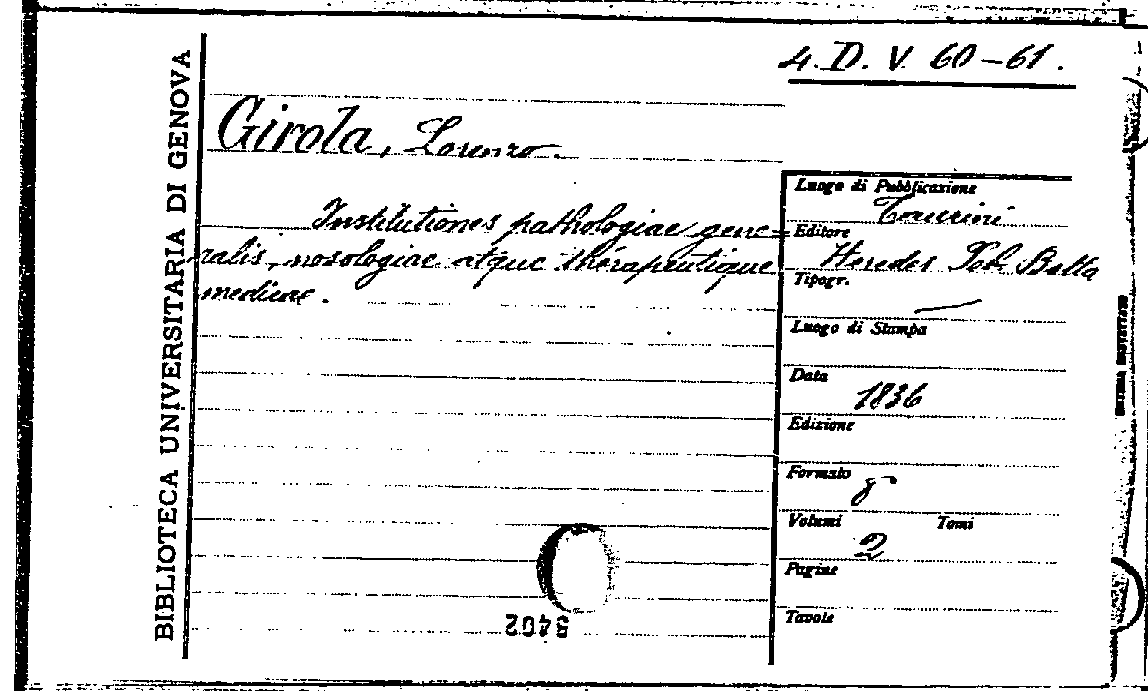 4. D. V. 60-61.
BIBLIOTECA UNIVERSITARIA DI GENOVA
Girola, Lorenzo.
Institutiones pathologiae gene=
ralis, nosologiae atque therapeutique
medicae.
Luogo di Pubblicazione
Taurini
Editore
Heredes Botta
Tipogr.
Luogo di Stampa
Data
1836
Edizione
Formato
8
Volumi Tomi
2
Pagine
Tavole